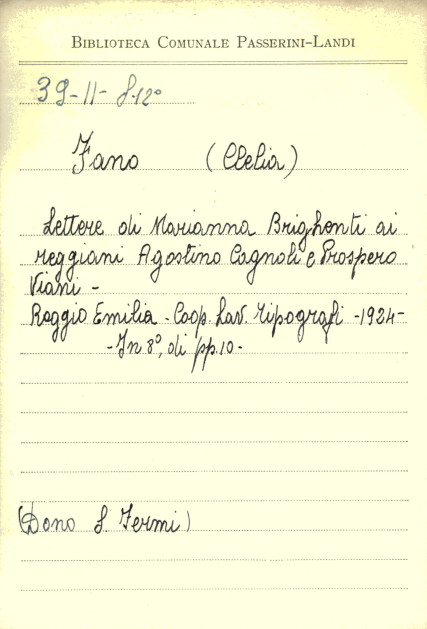 BIBLIOTECA COMUNALE PASSERINI-LANDI
39-11-8.12º
Fano (Clelia)
Lettere di Marianna Brighenti ai
reggiani Agostino Cagnoli e Prospero
Viani -
Reggio Emilia - Coop. Lav. Tipografi - 1924 -
- In 8º, di pp. 10 -
(Dono S. Fermi)